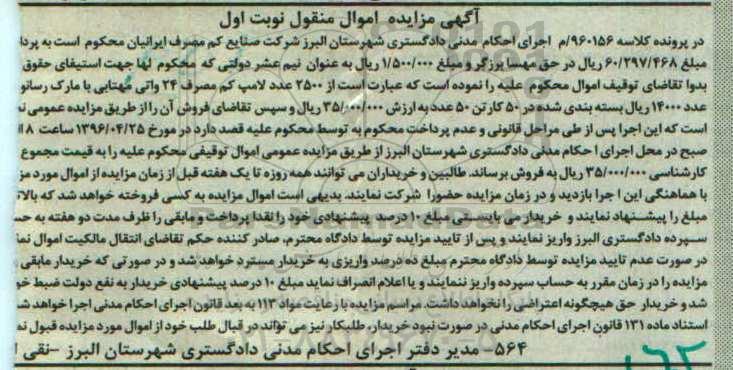 آگهی مزایده اموال منقول نوبت اول
در پرونده کلاسه ۹۶۰۱۵۶/م اجرای احکام مدنی دادگستری شهرستان البرز شرکت صنایع کم مصرف ایرانیان محکوم است به
مبلغ ۶۰/۲۹۷/۴۶۸ ریال در حق مهسا برزگر و مبلغ ۱/۵۰۰/۰۰۰ ریال به عنوان نیم عشر دولتی که محکوم لها جهت استیفای حقوق
بدوا تقاضای توقیف اموال محکوم علیه را نموده است که عبارت است از ۲۵۰۰ عدد لامپ کم مصرف ۲۴ واتی مهتابی با مارک
عدد ۱۴۰۰۰ ریال بسته بندی شده در ۵۰ کارتن ۵۰ عدد به ارزش ۳۵/۰۰۰/۰۰۰ ریال و سپس تقاضای فروش آن را از طریق مزایده عمومی
است که این اجرا پس از طی مراحل قانونی و عدم پرداخت محکوم به توسط محکوم علیه قصد دارد در مورخ ۱۳۹۶/۰۴/۲۵ ساعت ۸
صبح در محل اجرای احکام مدنی دادگستری شهرستان البرز از طریق مزایده عمومی اموال توقیفی محکوم علیه را به قیمت مجموع
کارشناسی ۳۵/۰۰۰/۰۰۰ ریال به فروش برساند. طالبین و خریداران می توانند همه روزه تا یک هفته قبل از زمان مزایده از اموال مورد
با هماهنگی این اجرا بازدید و در زمان مزایده حضورا شرکت نمایند. بدیهی است اموال مزایده به کسی فروخته خواهد شد که
مبلغ را پیشنهاد نمایند و خریدار می بایستی مبلغ ۱۰ درصد پیشنهادی خود را نقدا پرداخت و مابقی را ظرف مدت دو هفته به
سپرده دادگستری البرز واریز نمایند و پس از تایید مزایده توسط دادگاه محترم، صادر کننده حکم تقاضای انتقال مالکیت اموال
در صورت عدم تایید مزایده توسط دادگاه محترم مبلغ ده درصد واریزی به خریدار مسترد خواهد شد و در صورتی که خریدار مابقی
مزایده را در زمان مقرر به حساب سپرده واریز ننمایند و یا اعلام انصراف نماید مبلغ ۱۰ درصد پیشنهادی خریدار به نفع دولت ضبط
شد و خریدار حق هیچگونه اعتراضی را نخواهد داشت. مراسم مزایده با رعایت مواد ۱۱۳ به بعد قانون اجرای احکام مدنی اجرا خواهد
استناد ماده ۱۳۱ قانون اجرای احکام مدنی در صورت نبود خریدار، طلبکار نیز می تواند در قبال طلب خود از اموال مورد مزایده قبول
۵۶۴- مدیر دفتر اجرای احکام مدنی دادگستری شهرستان البرز -نقی